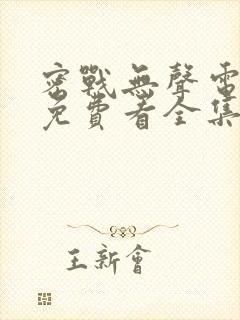 密戰無聲電
免費看全集
王新會